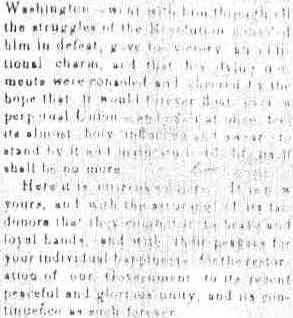 Washington—went with him through all
the struggles of the Revolution
him in defeat, gave to victory an addi-
tional charm, and that his dying mo-
ments were consoled and cheered by the
hope that it would forever float over a
perpetual Union
its almost holy and swear to
stand by it and
shall be no more.
Here it is It is
yours, and with the assurance of its fair
donors that they commit it to brave and
loyal hands, and with their prayers for
your individual happiness, the restor-
ation of our Government to its recent
peaceful and glorious unity, and its con-
tinuence as such forever